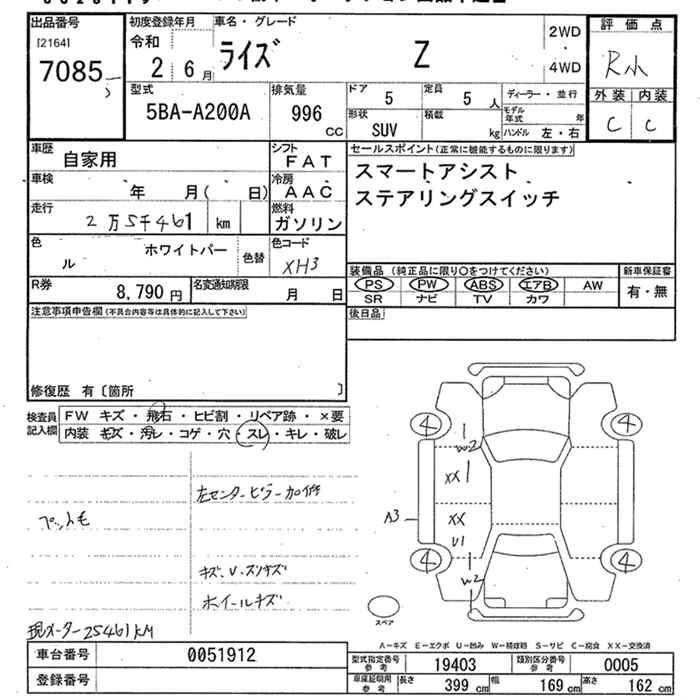 出品番号
[2164]
7085
初度登録年月
令和
2 6 月
車名・グレード
ライズ Z
2WD
4WD
評価点
外装 内装
C C
型式
5BA-A200A
排気量
996 CC
ドア
5
定員
5 人
形状
SUV
積載
kg
ディーラー・並行
モデル年式 年
ハンドル 左・右
車歴
自家用
シフト
FAT
車検
年 月( 日)
冷房
AAC
走行
2万5千461 km
燃料
ガソリン
色
ホワイトパール
色替
色コード
XH3
R券
8,790 円
名変通知期限
月 日
セールスポイント(正常に機能するものに限ります)
スマートアシスト
ステアリングスイッチ
装備品 (純正品に限り○をつけてください)
PS PW ABS エアB AW
SR ナビ TV カワ
新車保証書
有・無
後日品
注意事項申告欄(不具合内容等は具体的に記入して下さい)
修復歴 有〔箇所 〕
検査員記入欄
FW キズ・飛石・ヒビ割・リペア跡・×要
内装 キズ・汚レ・コゲ・穴・スレ・キレ・破レ
左センターピラー加修
ペット毛
キズ、U、スリキズ
ホイールキズ
現メーター25461KM
4 4
W2
XX
A3
XX
U1
4 4
W2
スペア
A-キズ E-エクボ U-凹み W-補修跡 S-サビ C-腐食 XX-交換済
車台番号
0051912
登録番号
型式指定番号 参考
19403
類別区分番号 参考
0005
車庫証明用 参考
長さ 399 cm
幅 169 cm
高さ 162 cm